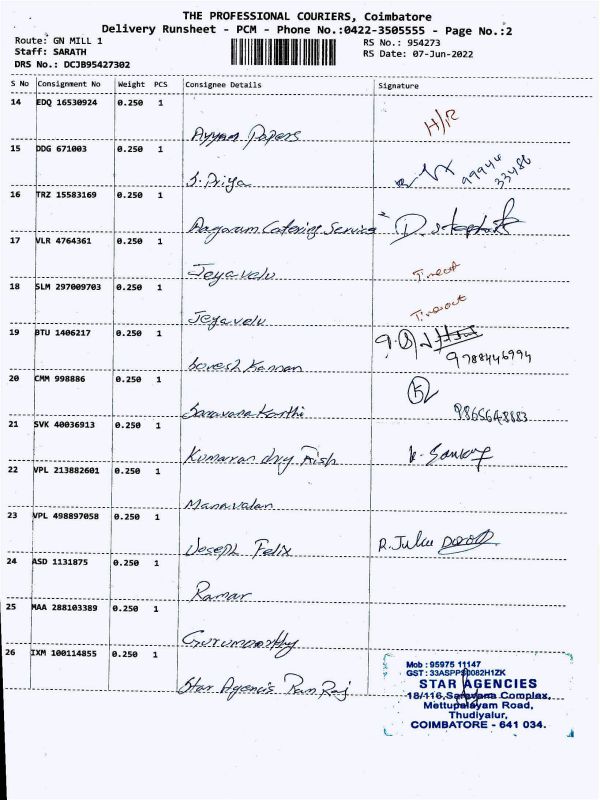 THE PROFESSIONAL COURIERS, Coimbatore
Delivery Runsheet - PCM - Phone No.:0422-3505555 - Page No.:2
Route: GN MILL 1 RS No.: 954273
Staff: SARATH RS Date: 07-Jun-2022
DRS No.: DCJB95427302
S No Consignment No Weight PCS Consignee Details Signature
14 EDQ 16530924 0.250 1
Ayyan Papers H/R
15 DDG 671003 0.250 1
S. Priya 99944 33486
16 TRZ 15583169 0.250 1
Aagaram Catering Service
17 VLR 4764361 0.250 1
Jeyavelu
18 SLM 297009703 0.250 1
Jeyavelu
19 BTU 1406217 0.250 1
Kannan 9788446994
20 CMM 998886 0.250 1
Saravana Karthi
21 SVK 40036913 0.250 1
Kumaran dry Fish
22 VPL 213882601 0.250 1
Manavalan
23 VPL 498897058 0.250 1
Joseph Felix
24 ASD 1131875 0.250 1
Raman
25 MAA 288103389 0.250 1
Gurumoorthy
26 IXM 100114855 0.250 1
Star Agencis Raj
Mob : 95975 11147
STAR AGENCIES
18/116, Saravana Complex,
Mettupalayam Road,
Thudiyalur,
COIMBATORE - 641 034.